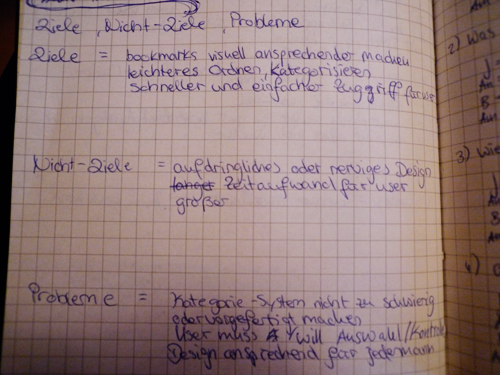 Ziele, Nicht-Ziele, Probleme
Ziele = bookmarks visuell ansprechender machen
leichteres Ordnen, Kategorisieren
schneller und einfacher Zuggriff für
Nicht-Ziele = aufdringliches oder nerviges Design
Zeitaufwand für user
größer
Probleme = Kategorie-System nicht zu schwierig
oder vorgefertigt machen
User muss will Auswahl/Kontrolle
Design ansprechend für jedermann
2) Was
3) Wie
4)